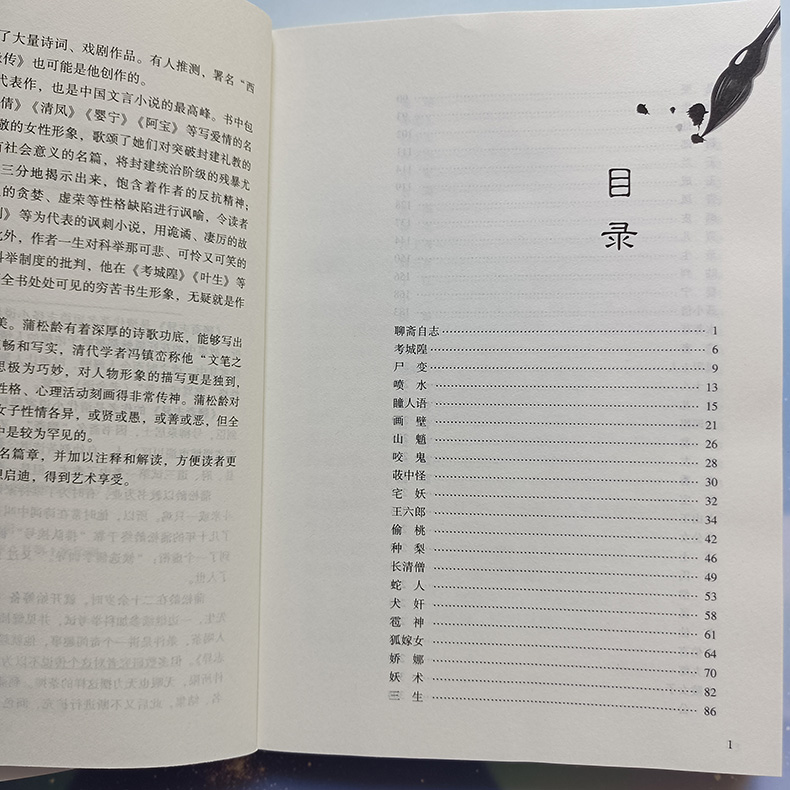 了大量诗词、戏剧作品。有人推测、署名“西
传》也可能是他创作的。
代表作，也是中国文言小说的最高峰。书中包
倩》《清凤》《婴宁》《阿宝》等写爱情的名
敬的女性形象，歌颂了她们对突破封建礼教的
有社会意义的名篇，将封建统治阶级的残暴尤
三分地揭示出来，饱含着作者的反抗精神；
的贪婪、虚荣等性格缺陷进行讽喻，令读者
》等为代表的讽刺小说，用诡谲、凄厉的故
此外，作者一生对科举那可悲、可怜又可笑的
科举制度的批判，他在《考城隍》《叶生》等
全书处处可见的穷苦书生形象，无疑就是作
美。蒲松龄有着深厚的诗歌功底，能够写出
畅和写实，清代学者冯镇峦称他“文笔之
思极为巧妙，对人物形象的描写更是独到，
性格、心理活动刻画得非常传神。蒲松龄对
女子性情各异，或贤或愚，或善或恶，但全
中是较为罕见的。
名篇章，并加以注释和解读，方便读者更
启迪，得到艺术享受。
目录
聊斋自志 1
考城隍 6
尸变 9
喷水 13
瞳人语 15
画壁 21
山魈 26
咬鬼 28
荍中怪 30
宅妖 32
王六郎 34
偷桃 42
种梨 46
长清僧 49
蛇人 53
犬奸 58
雹神 61
狐嫁女 64
娇娜 70
妖术 82
三生 86
1